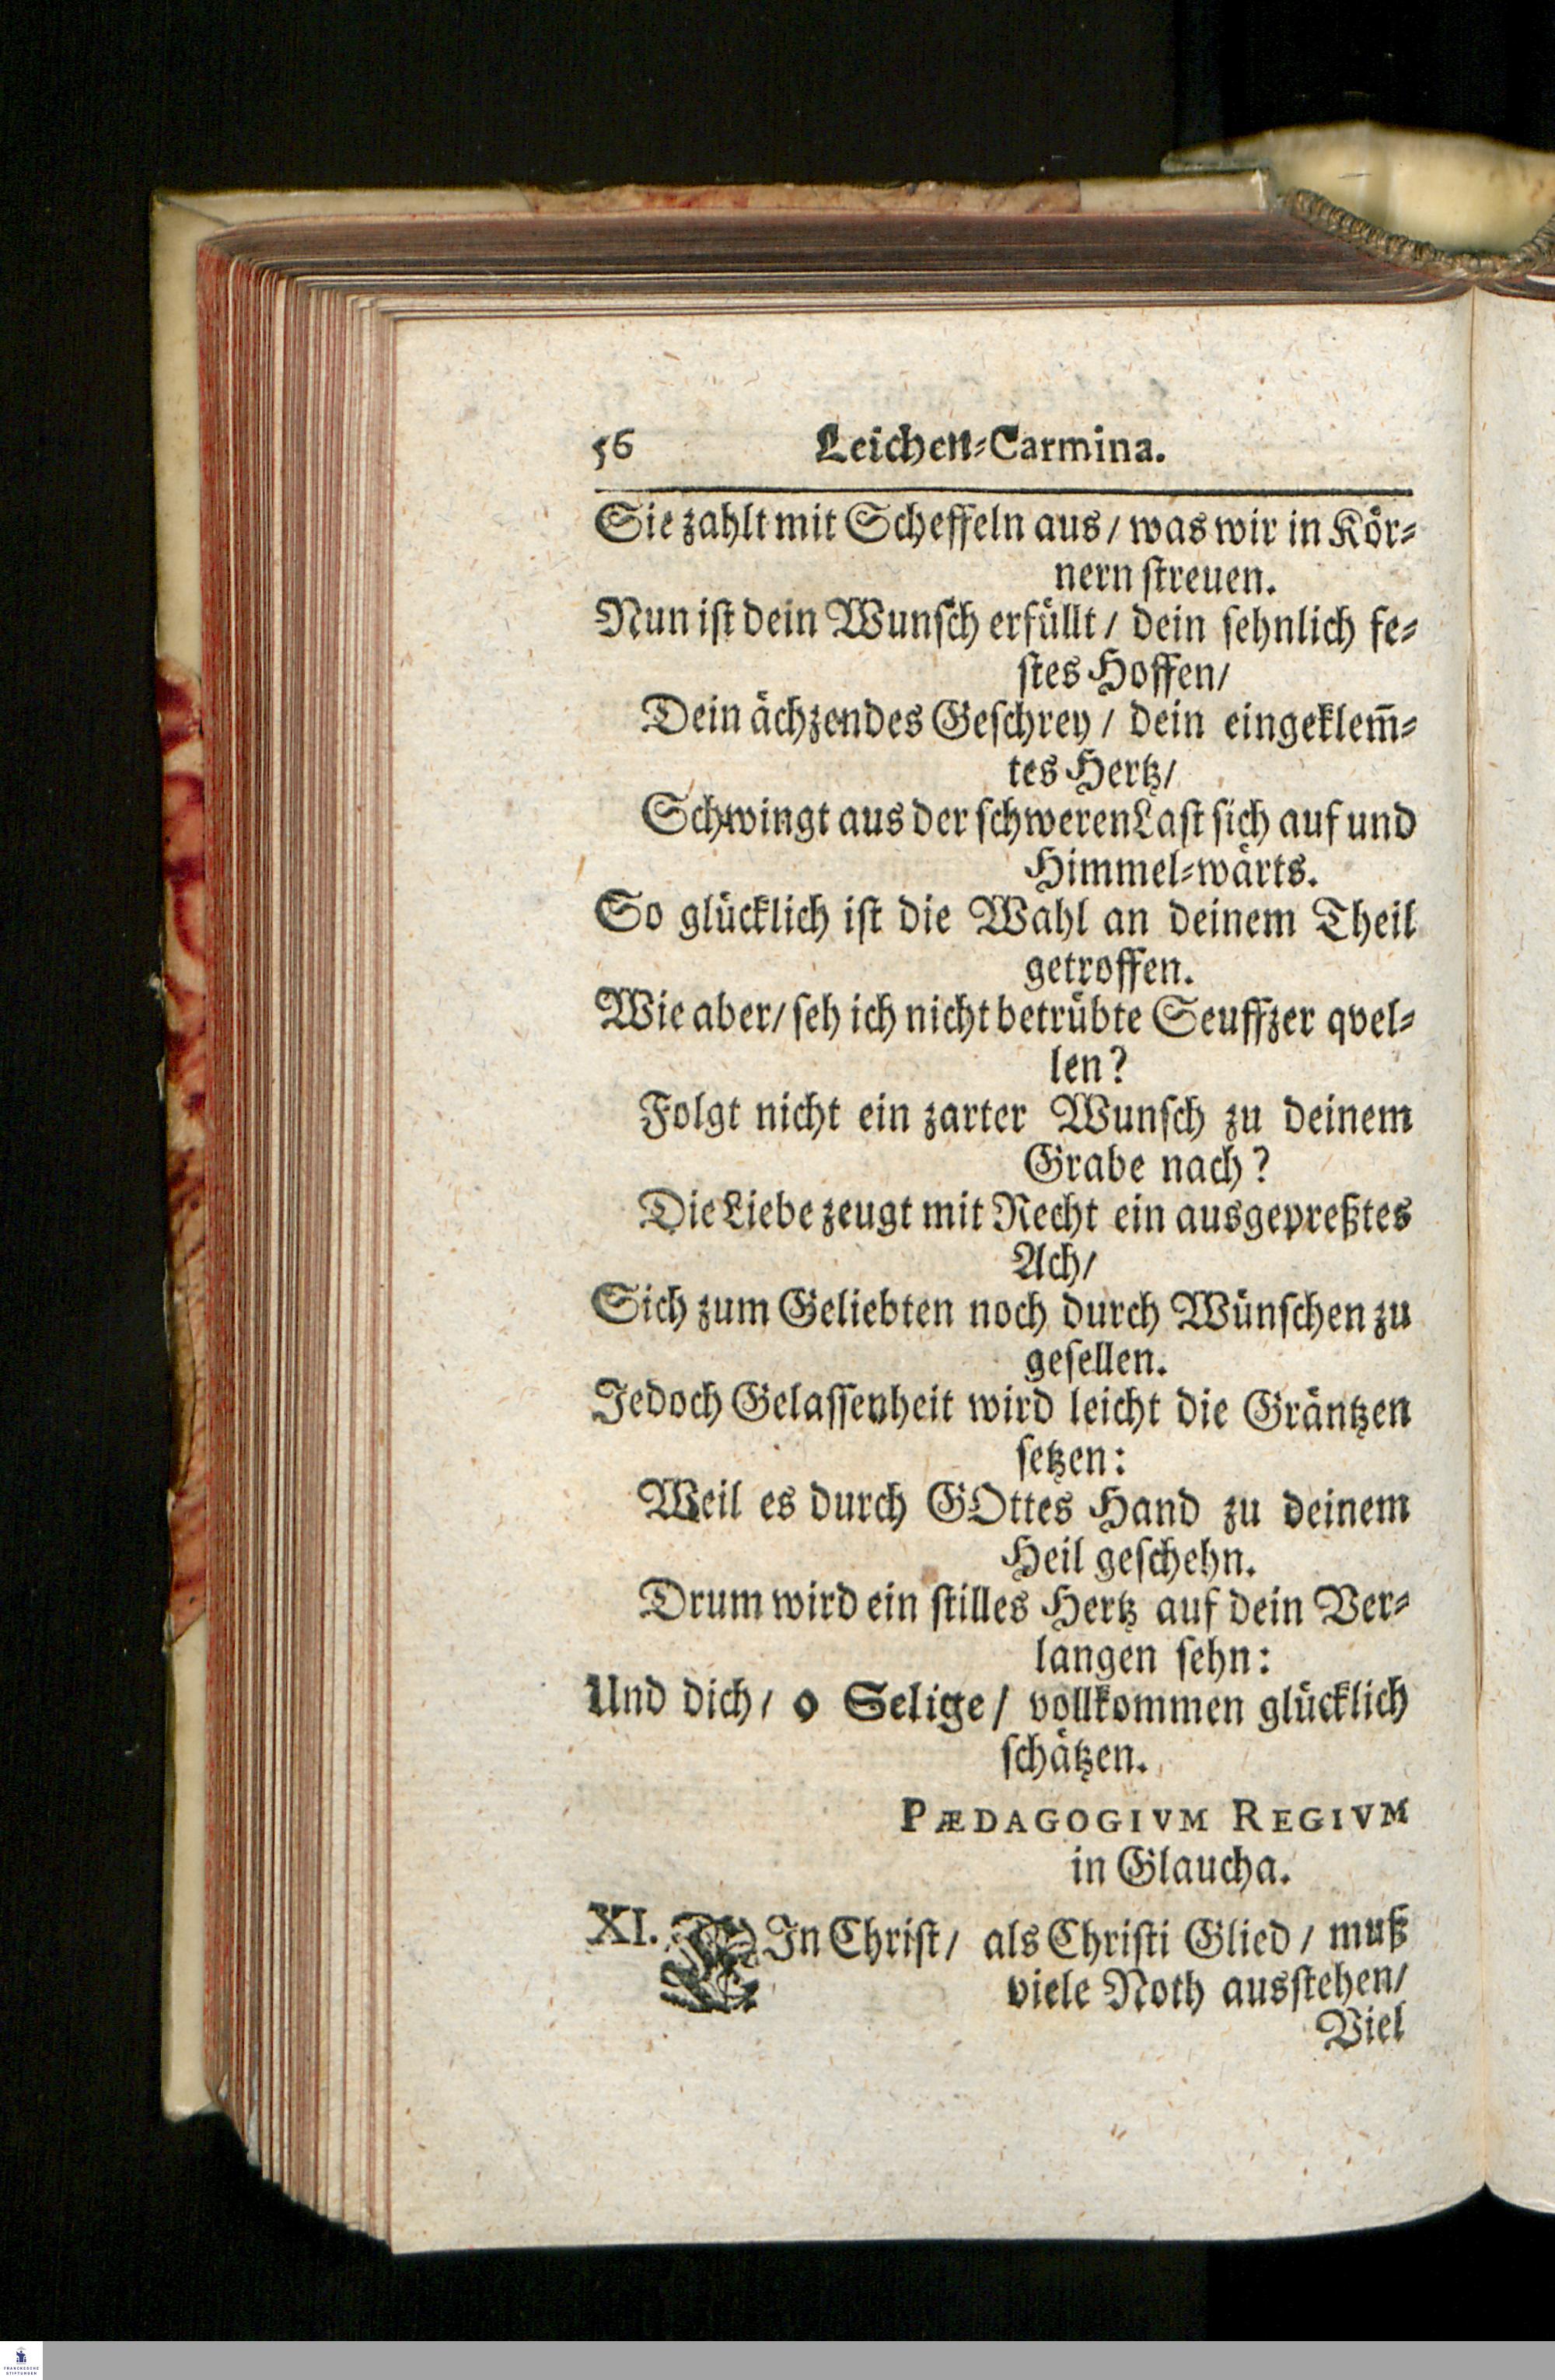 56 Leichen-Carmina.
Sie zahlt mit Scheffeln aus / was wir in Kör-
nern streuen.
Nun ist dein Wunsch erfüllt / dein sehnlich fe-
stes Hoffen /
Dein ächzendes Geschrey / dein eingeklem̃-
tes Hertz /
Schwingt aus der schweren Last sich auf und
Himmel-wärts.
So glücklich ist die Wahl an deinem Theil
getroffen.
Wie aber / seh ich nicht betrübte Seuffzer qvel-
len?
Folgt nicht ein zarter Wunsch zu deinem
Grabe nach?
Die Liebe zeugt mit Recht ein ausgepreßtes
Ach /
Sich zum Geliebten noch durch Wünschen zu
gesellen.
Jedoch Gelassenheit wird leicht die Gräntzen
setzen:
Weil es durch GOttes Hand zu deinem
Heil geschehn.
Drum wird ein stilles Hertz auf dein Ver-
langen sehn:
Und dich / o Selige / vollkommen glücklich
schätzen.
PÆDAGOGIVM REGIVM
in Glaucha.
XI. EIn Christ / als Christi Glied / muß
viele Noth ausstehen /
Viel
FRANCKESCHE
STIFTUNGEN